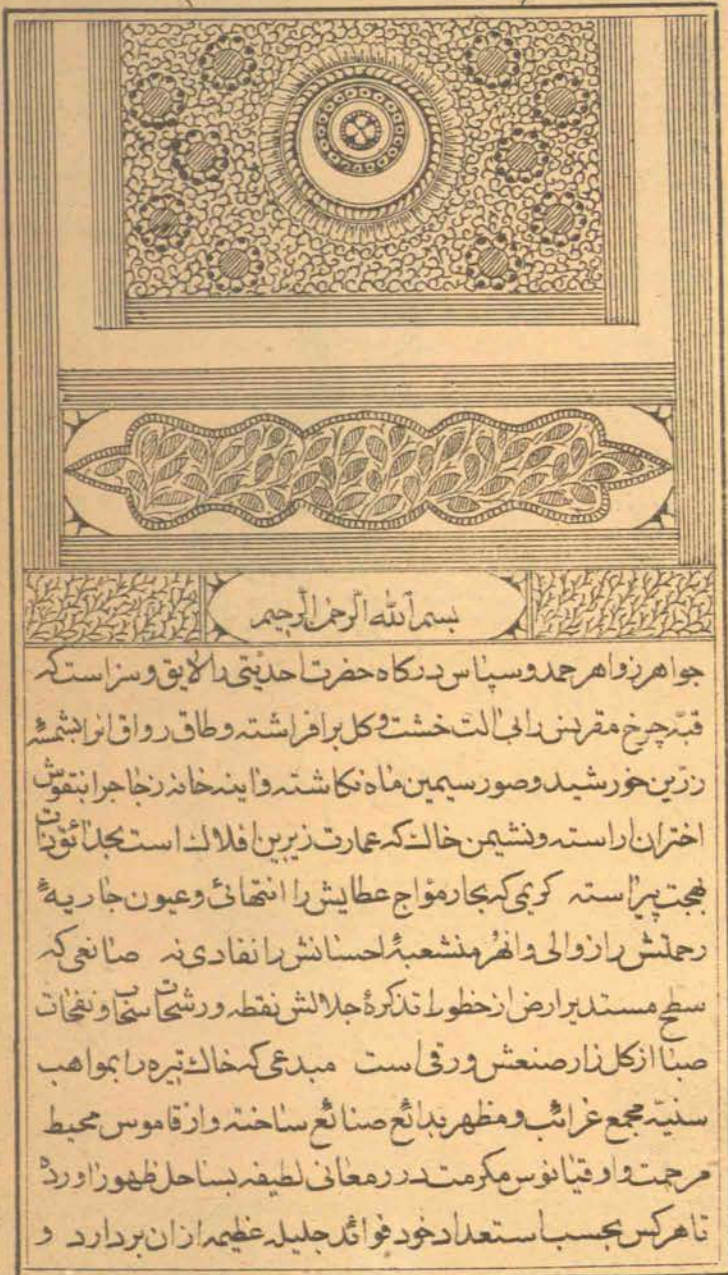 بسم الله الرحمن الرحیم
جواهر زواهر حمد و سپاس درکاه حضرت احدیّتی را لایق و سزاست که
قبّه چرخ مقرنس را بی الت خشت و کل برافراشته و طاق رواق انرا بشمسهٔ
زرّین خورشید و صور سیمین ماه نکاشته و اینه خانه زجاجرا بنقوش
اختران اراسته و نشیمن خاك که عمارت زیرین افلاك است بحدائق ذات
بهجت پیراسته کریمی که بحار موّاج عطایش را انتهائی و عیون جاریهٔ
رحمتش را زوالی و انهر منشعبهٔ احسانش را نفادی نه صانعی که
سطح مستدیر ارض از خطوط تذکرهٔ جلالش نقطه و رشحات سحاب و نفحات
صبا از کل زار صنعش ورقی است مبدعی که خاك تیره را بمواهب
سنیّه مجمع غرائب و مظهر بدائع صنائع ساخته و از قاموس محیط
مرحمت و اوقیانوس مکرمت درر معانی لطیفه بساحل ظهور اورده
تا هر کس بحسب استعداد خود فوائد جلیله عظیمه ازان بردارد و